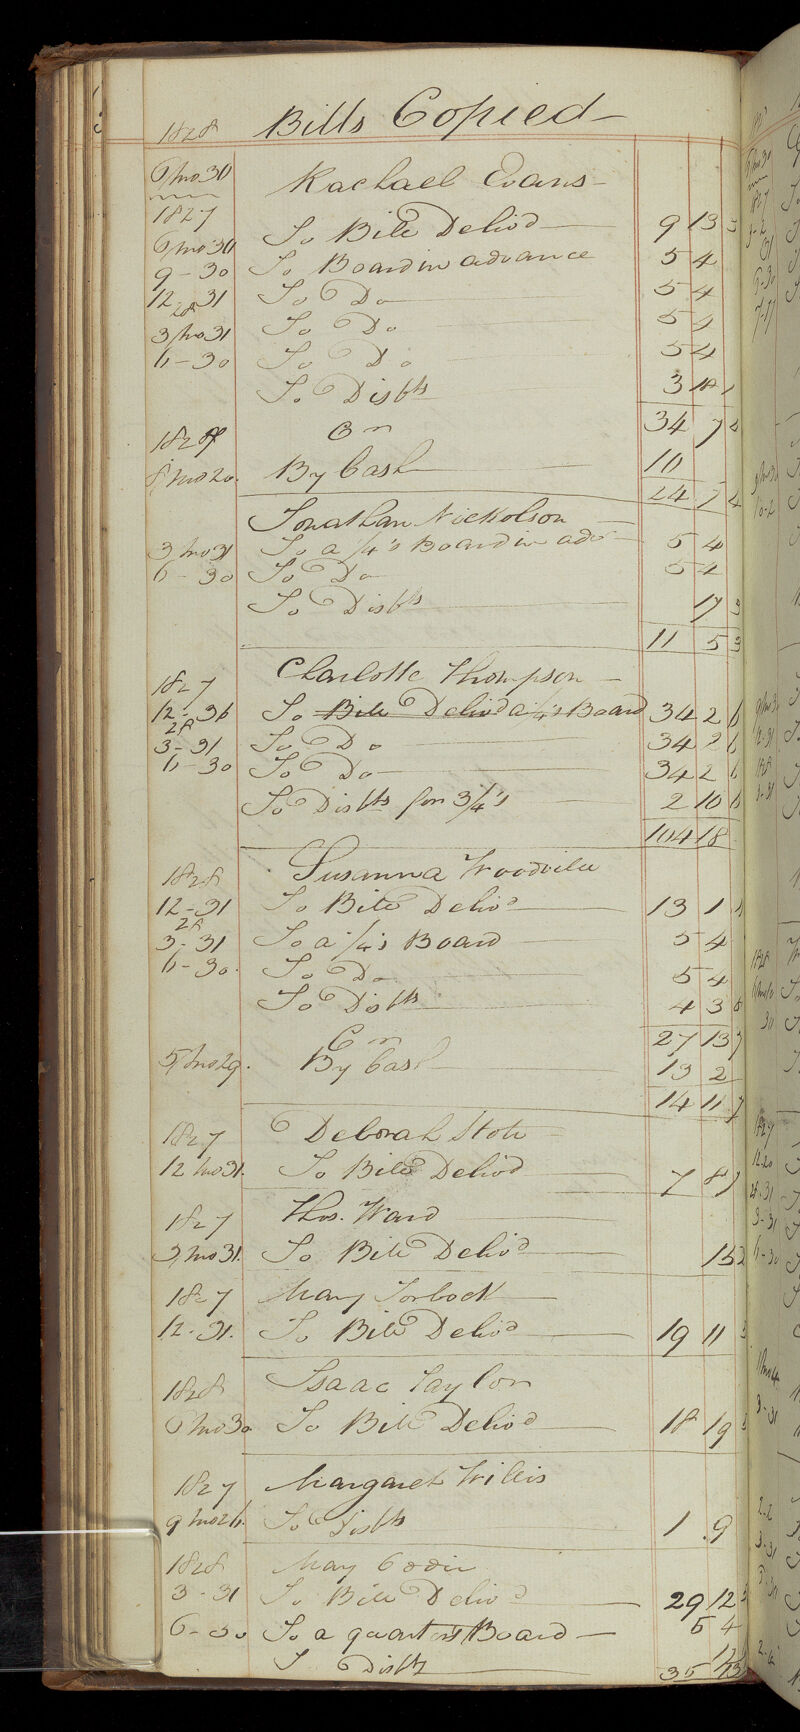 1828 Bills Copied
6 mo 30 Rachael Evans
1827
6 mo 30 To Bill Deliv'd 9 13 3
9 - 30 To Board in advance 5 4
12 - 31 To Do 5 4
28
3 mo 31 To Do 5 4
6 - 30 To Do 5 4
To Disbts 3 18 1
1828 Cr 34 7 4
8 mo 20. By Cash 10
24 7 4
Jonathan Nickolson
3 mo 31 To a 1/4's Board in adv 5 4
6 - 30 To Do 5 4
To Disbts 17 3
11 5 3
1827 Charlotte Thompson
12 - 31 To Bill Deliv'd a 1/4's Board 34 2 6
28
3 - 31 To Do 34 2 6
6 - 30 To Do 34 2 6
To Disbts for 3/4's 2 10 6
104 18
1828 Susanna Woodville
12 - 31 To Bill Deliv'd 13 1
28
3 - 31 To a 1/4's Board 5 4
6 - 30. To Do 5 4
To Disbts 4 3 8
Cr 27 13 7
5 mo 29. By Cash 13 2
14 11 7
1827 Deborah
12 mo 31. To Bill Deliv'd 7 8 7
1827 Thos. Ward
3 mo 31. To Bill Deliv'd 15 2
1827 Mary Torbock
12 - 31. To Bill Deliv'd 19 11
1828 Isaac Taylor
6 mo 30 To Bill Deliv'd 18 19
1827 Margaret Willis
9 mo 26. To Disbts 1 9
1828 Mary
3 - 31 To Bill Deliv'd 29 12
6 - 30 To a quarters Board 5 4
To Disbts
35 13